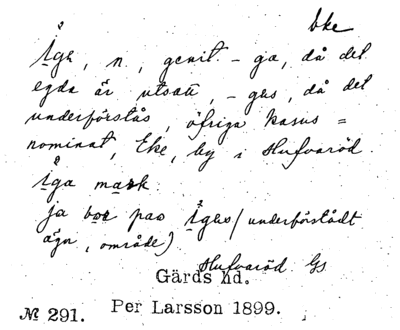 Eke
Åga, n., genit. - ga, då det
egda är utsatt, - gas, då det
underförstås, öfriga kasus =
nominat, Eke, by i Hufvaröd.
åga mark.
ja bor pao ågas (underförstådt
ägn, område)
Hufvaröd Gs
Gärds hd.
№ 291. Per Larsson 1899.